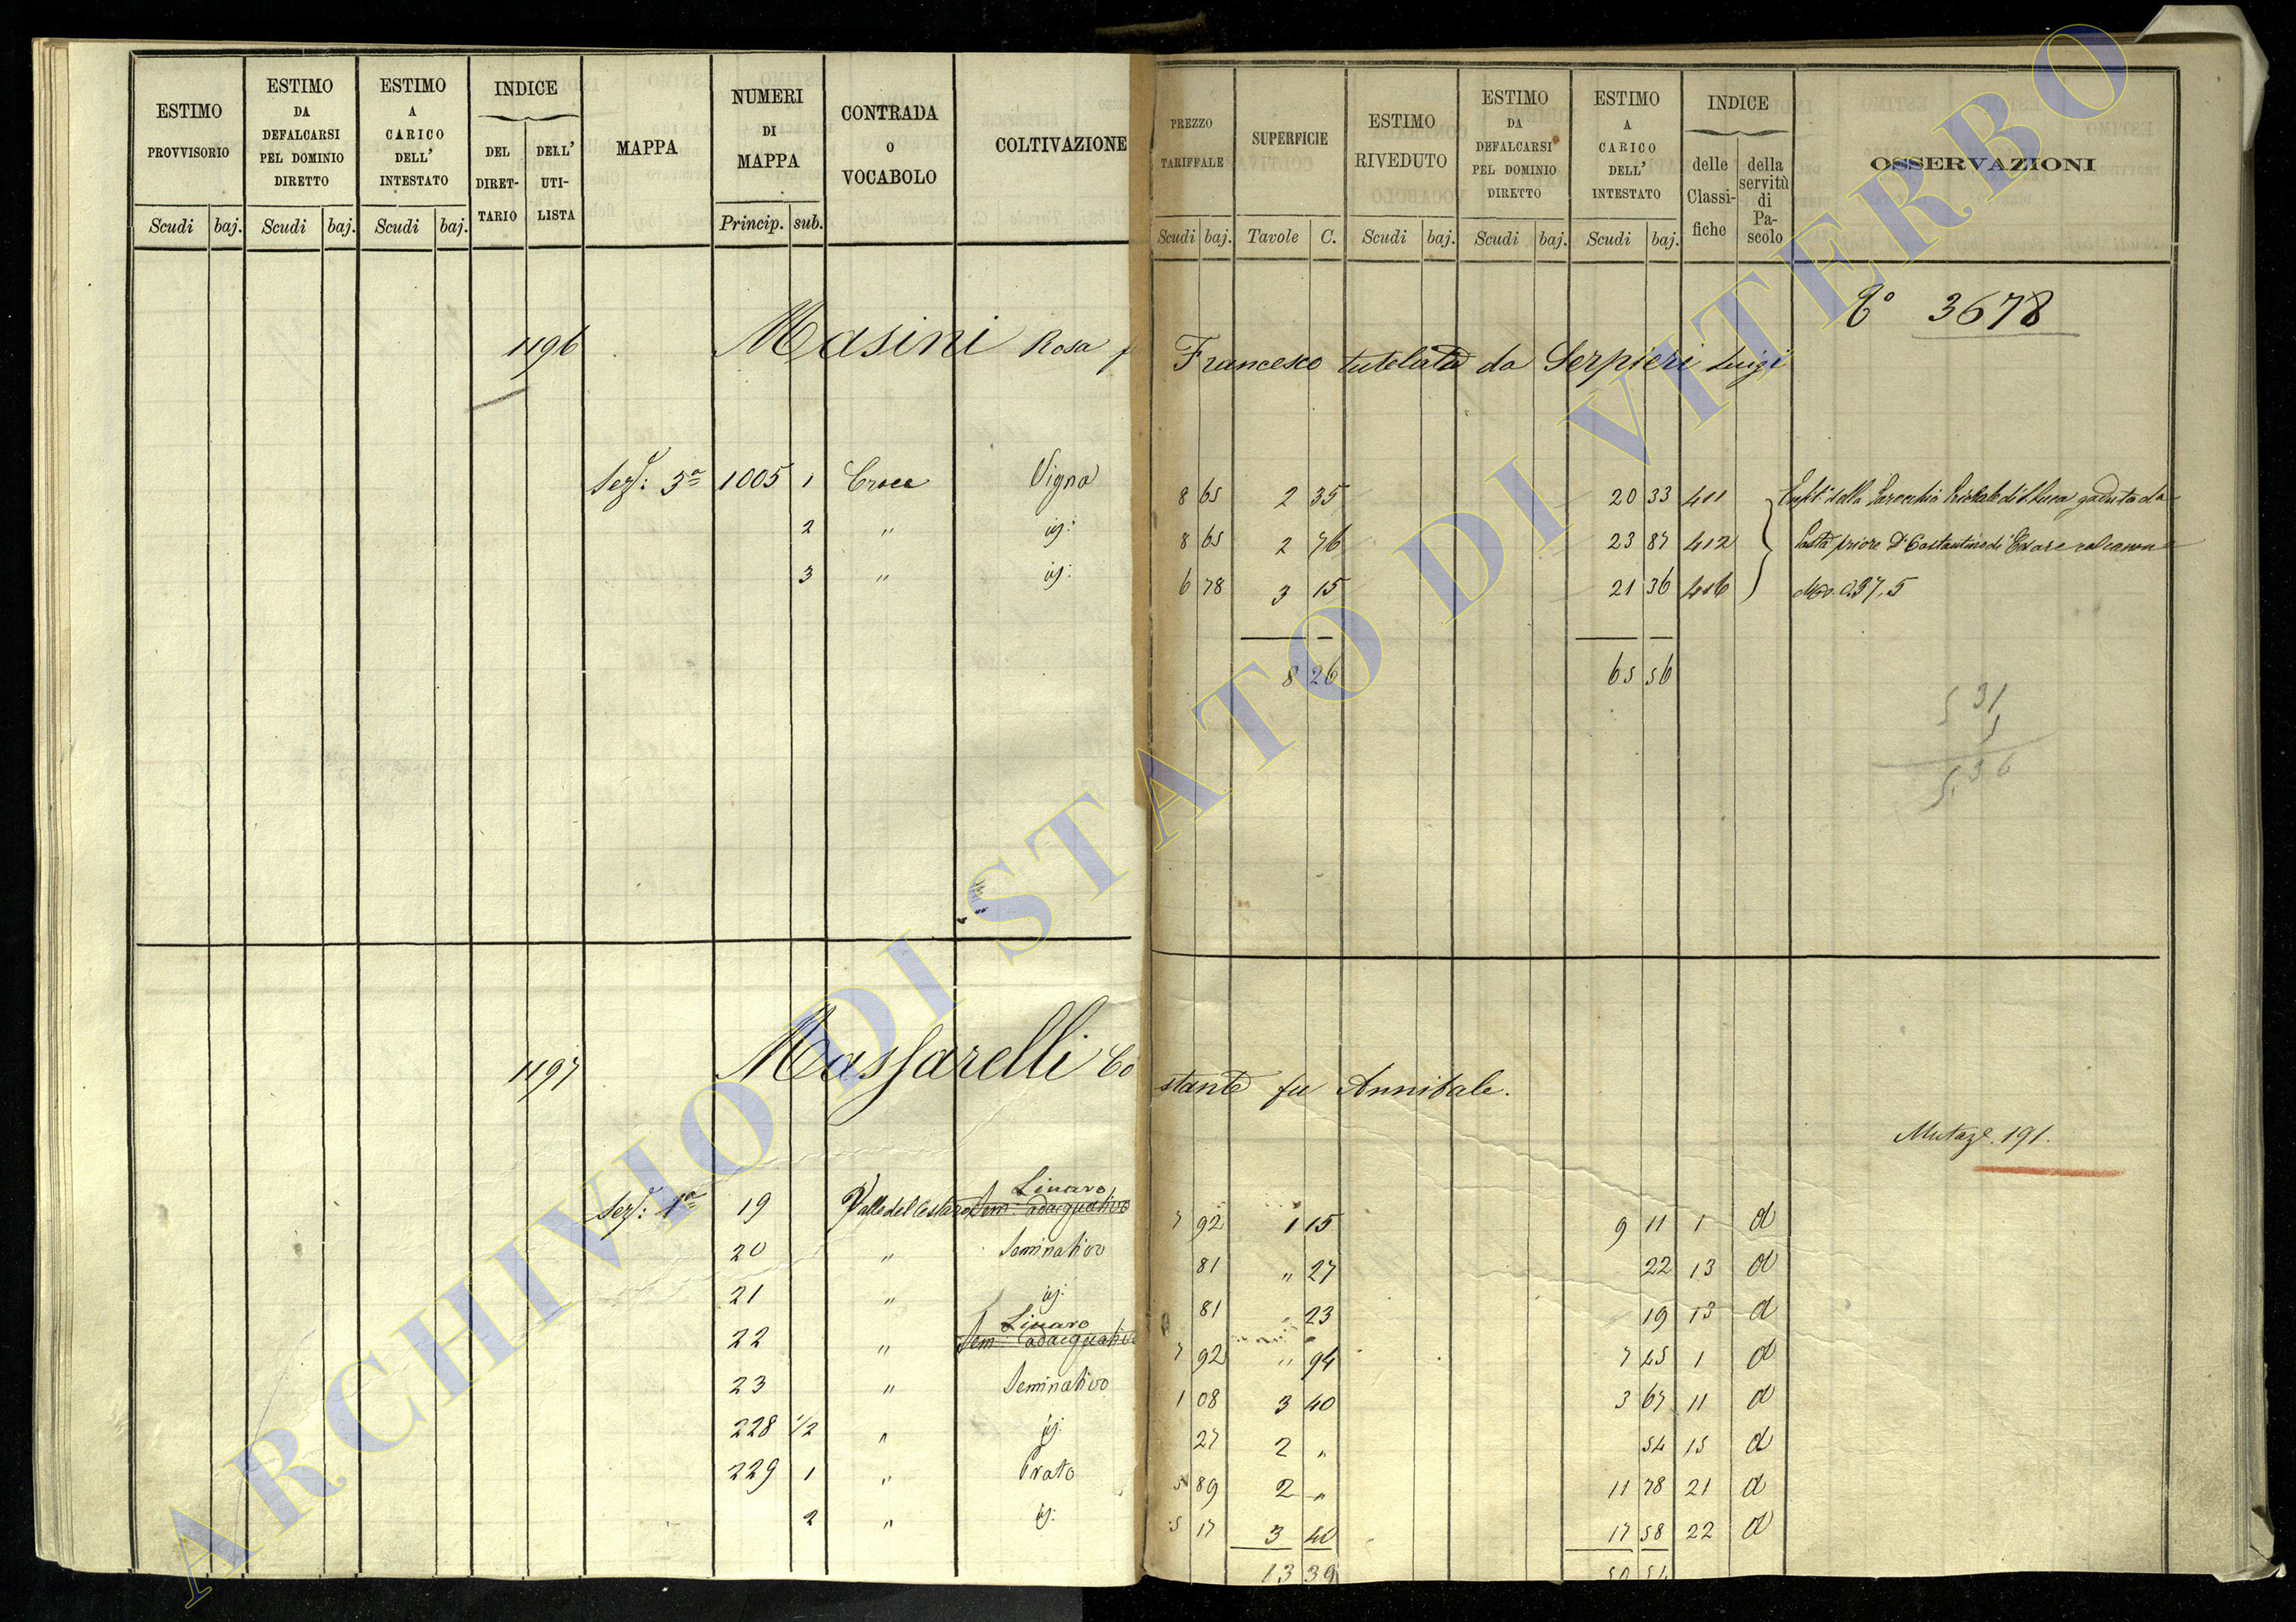 ESTIMO PROVVISORIO Scudi baj.
ESTIMO DA DEFALCARSI PEL DOMINIO DIRETTO Scudi baj.
ESTIMO A CARICO DELL' INTESTATO Scudi baj.
INDICE DEL DIRET-TARIO DELL' UTI-LISTA
MAPPA
NUMERI DI MAPPA Princip. sub.
CONTRADA O VOCABOLO
COLTIVAZIONE
PREZZO TARIFFALE Scudi baj.
SUPERFICIE Tavole C.
ESTIMO RIVEDUTO Scudi baj.
ESTIMO DA DEFALCARSI PEL DOMINIO DIRETTO Scudi baj.
ESTIMO A CARICO DELL' INTESTATO Scudi baj.
INDICE delle Classi-fiche della servitù di Pa-scolo
OSSERVAZIONI
3678
1196 Masini Rosa f Francesco tutelata da Serpieri Luigi
Sez: 3a 1005 1 Croce Vigna 8 65 2 35 20 33 411
2 " id: 8 65 2 76 23 87 412
3 " id: 6 78 3 15 21 36 416
8 26 65 56
5 31
5
5,36
1197 Massarelli Costante fu Annibale.
Mutaze. 191.
Linaro
Sez: 1a 19 Valle del Cestaro Sem: adacquativo 7 92 1 15 9 11 1 d
20 " Seminativo 81 " 27 22 13 d
21 " id: 81 23 19 13 d
Linaro
22 " Sem: adacquativo 7 92 " 94 7 45 1 d
23 " Seminativo 1 08 3 40 3 67 11 d
228 1/2 " id: 27 2 " 54 15 d
229 1 " Prato 5 89 2 " 11 78 21 d
2 " id: 5 17 3 40 17 58 22 d
13 39
ARCHIVIO DI STATO DI VITERBO